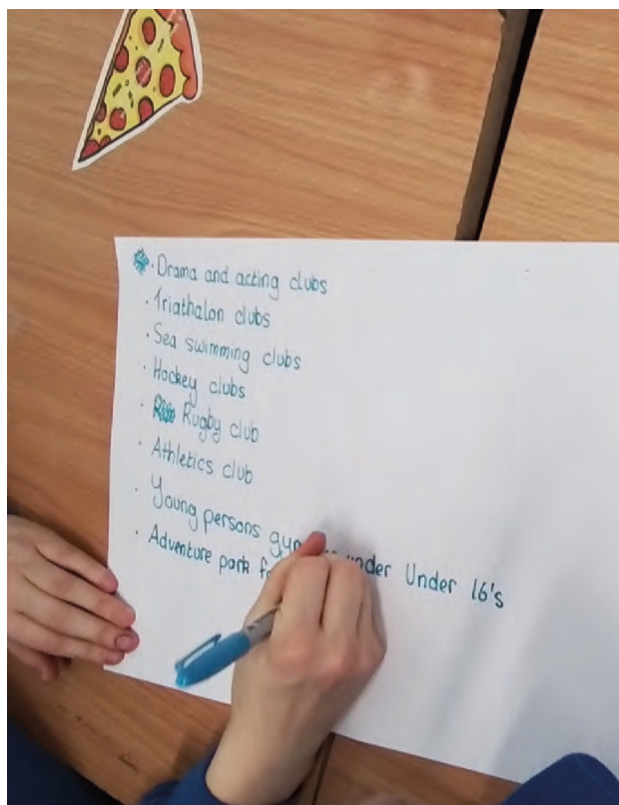 · Drama and acting clubs
· Triathalon clubs
· Sea swimming clubs
· Hockey clubs
· Rugby club
· Athletics club
· Young persons under Under 16's
· Adventure park